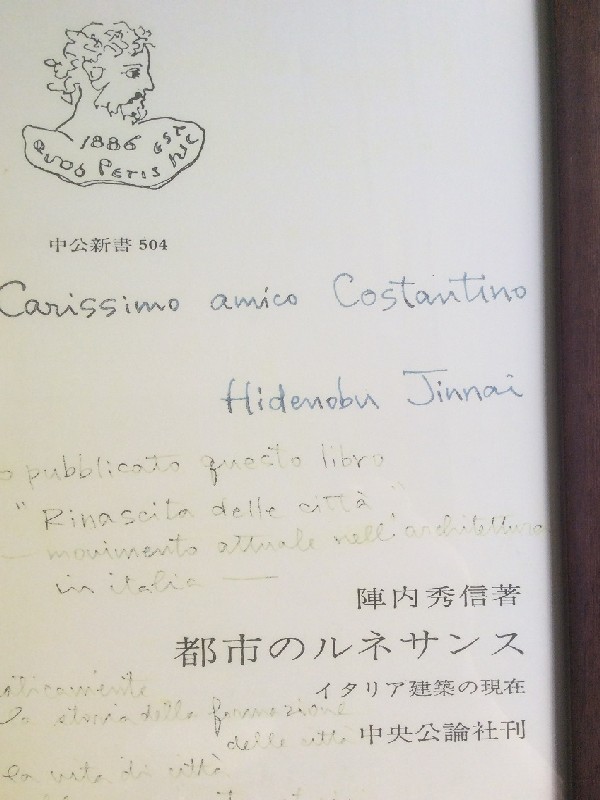 1886
QUOD PETIS HIC EST
中公新書 504
Carissimo amico Costantino
Hidenobu Jinnai
o pubblicato questo libro
"Rinascita delle città"
— movimento attuale nell'architettura
in italia —
陣内秀信著
都市のルネサンス
イタリア建築の現在
la storia della formazione
delle città
中央公論社刊
la vita di città